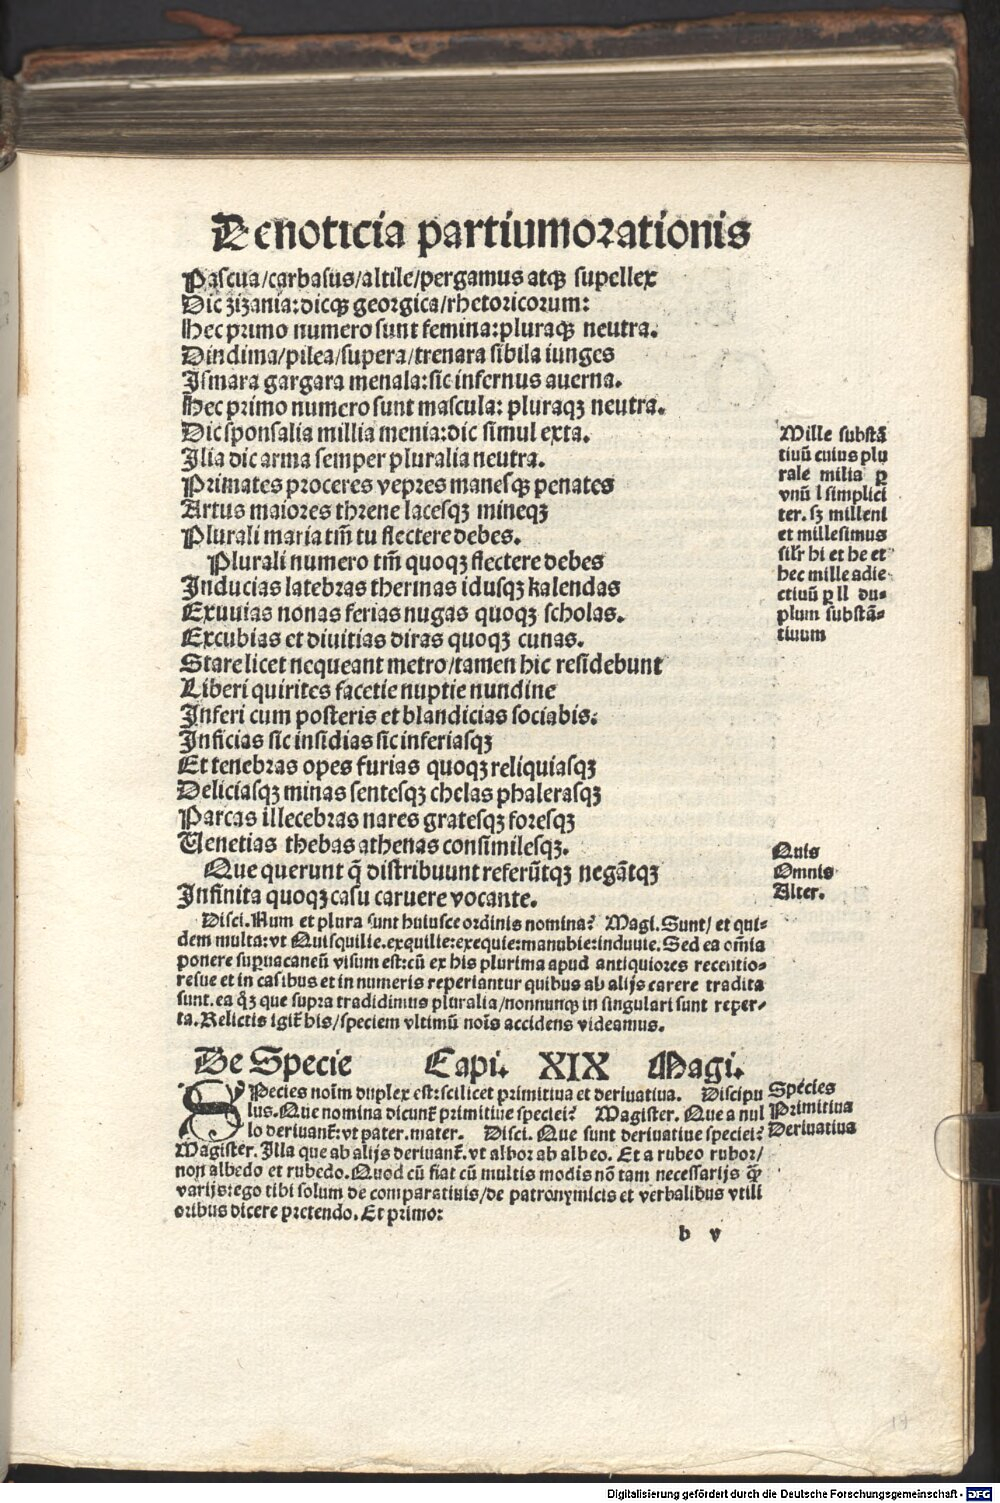 De noticia partiumorationis
Pascua/carbasus/altile/pergamus atqꝫ supellex
Dic zizania:dicqꝫ georgica/rhetoricorum:
Hec primo numero sunt femina:pluraqꝫ neutra.
Dindima/pilea/supera/trenara sibila iunges
Ismara gargara menala:sic infernus auerna.
Hec primo numero sunt mascula: pluraqꝫ neutra.
Dic sponsalia millia menia:dic simul exta.
Ilia dic arma semper pluralia neutra.
Primates proceres vepres manesqꝫ penates
Artus maiores threne lacesqꝫ mineqꝫ
Plurali maria tm̄ tu flectere debes.
Plurali numero tm̄ quoqꝫ flectere debes
Inducias latebras thermas idusqꝫ kalendas
Exuuias nonas ferias nugas quoqꝫ scholas.
Excubias et diuitias diras quoqꝫ cunas.
Stare licet nequeant metro/tamen hic residebunt
Liberi quirites facetie nuptie nundine
Inferi cum posteris et blandicias sociabis:
Inficias sic insidias sic inferiasqꝫ
Et tenebras opes furias quoqꝫ reliquiasqꝫ
Deliciasqꝫ minas sentesqꝫ chelas phalerasqꝫ
Parcas illecebras nares gratesqꝫ foresqꝫ
Venetias thebas athenas consimilesqꝫ.
Que querunt q̄ distribuunt referūtqꝫ negātqꝫ
Infinita quoqꝫ casu caruere vocante.
Mille substā
tiuū cuius plu
rale milia ꝑ
vnū l simplici
ter. sꝫ milleni
et millesimus
silr̄ hi et he et
hec mille adie
ctiuū ꝑ ll du-
plum substā-
tiuum
Quis
Omnis
Alter.
Disci. Num et plura sunt huiusce ordinis nomina? Magi. Sunt/ et qui-
dem multa: vt Quisquilie.exquilie:exequie:manubie:induuie. Sed ea om̄ia
ponere suꝑuacaneū visum est:cū ex his plurima apud antiquiores recentio-
resue et in casibus et in numeris reperiantur quibus ab alijs carere tradita
sunt. ea qꝫ̄ que supra tradidimus pluralia/nonnunqꝫ in singulari sunt reper-
ta. Relictis igit̄ his/speciem vltimū nois̄ accidens videamus.
De Specie Capi. XIX Magi.
SPecies noīm duplex est:scilicet primitiua et deriuatiua. Discipu
lus. Que nomina dicunt̄ primitiue speciei? Magister. Que a nul
lo deriuant̄: vt pater.mater. Disci. Que sunt deriuatiue speciei?
Magister. Illa que ab alijs deriuant̄. vt albor ab albeo. Et a rubeo rubor/
non albedo et rubedo. Quod cū fiat cū multis modis nō tam necessarijs qꝫ̄
varijs:ego tibi solum de comparatiuis/de patronymicis et verbalibus vtili
oribus dicere pretendo. Et primo:
Species
Primitiua
Deriuatiua
b v
19
Digitalisierung gefördert durch die Deutsche Forschungsgemeinschaft - DFG